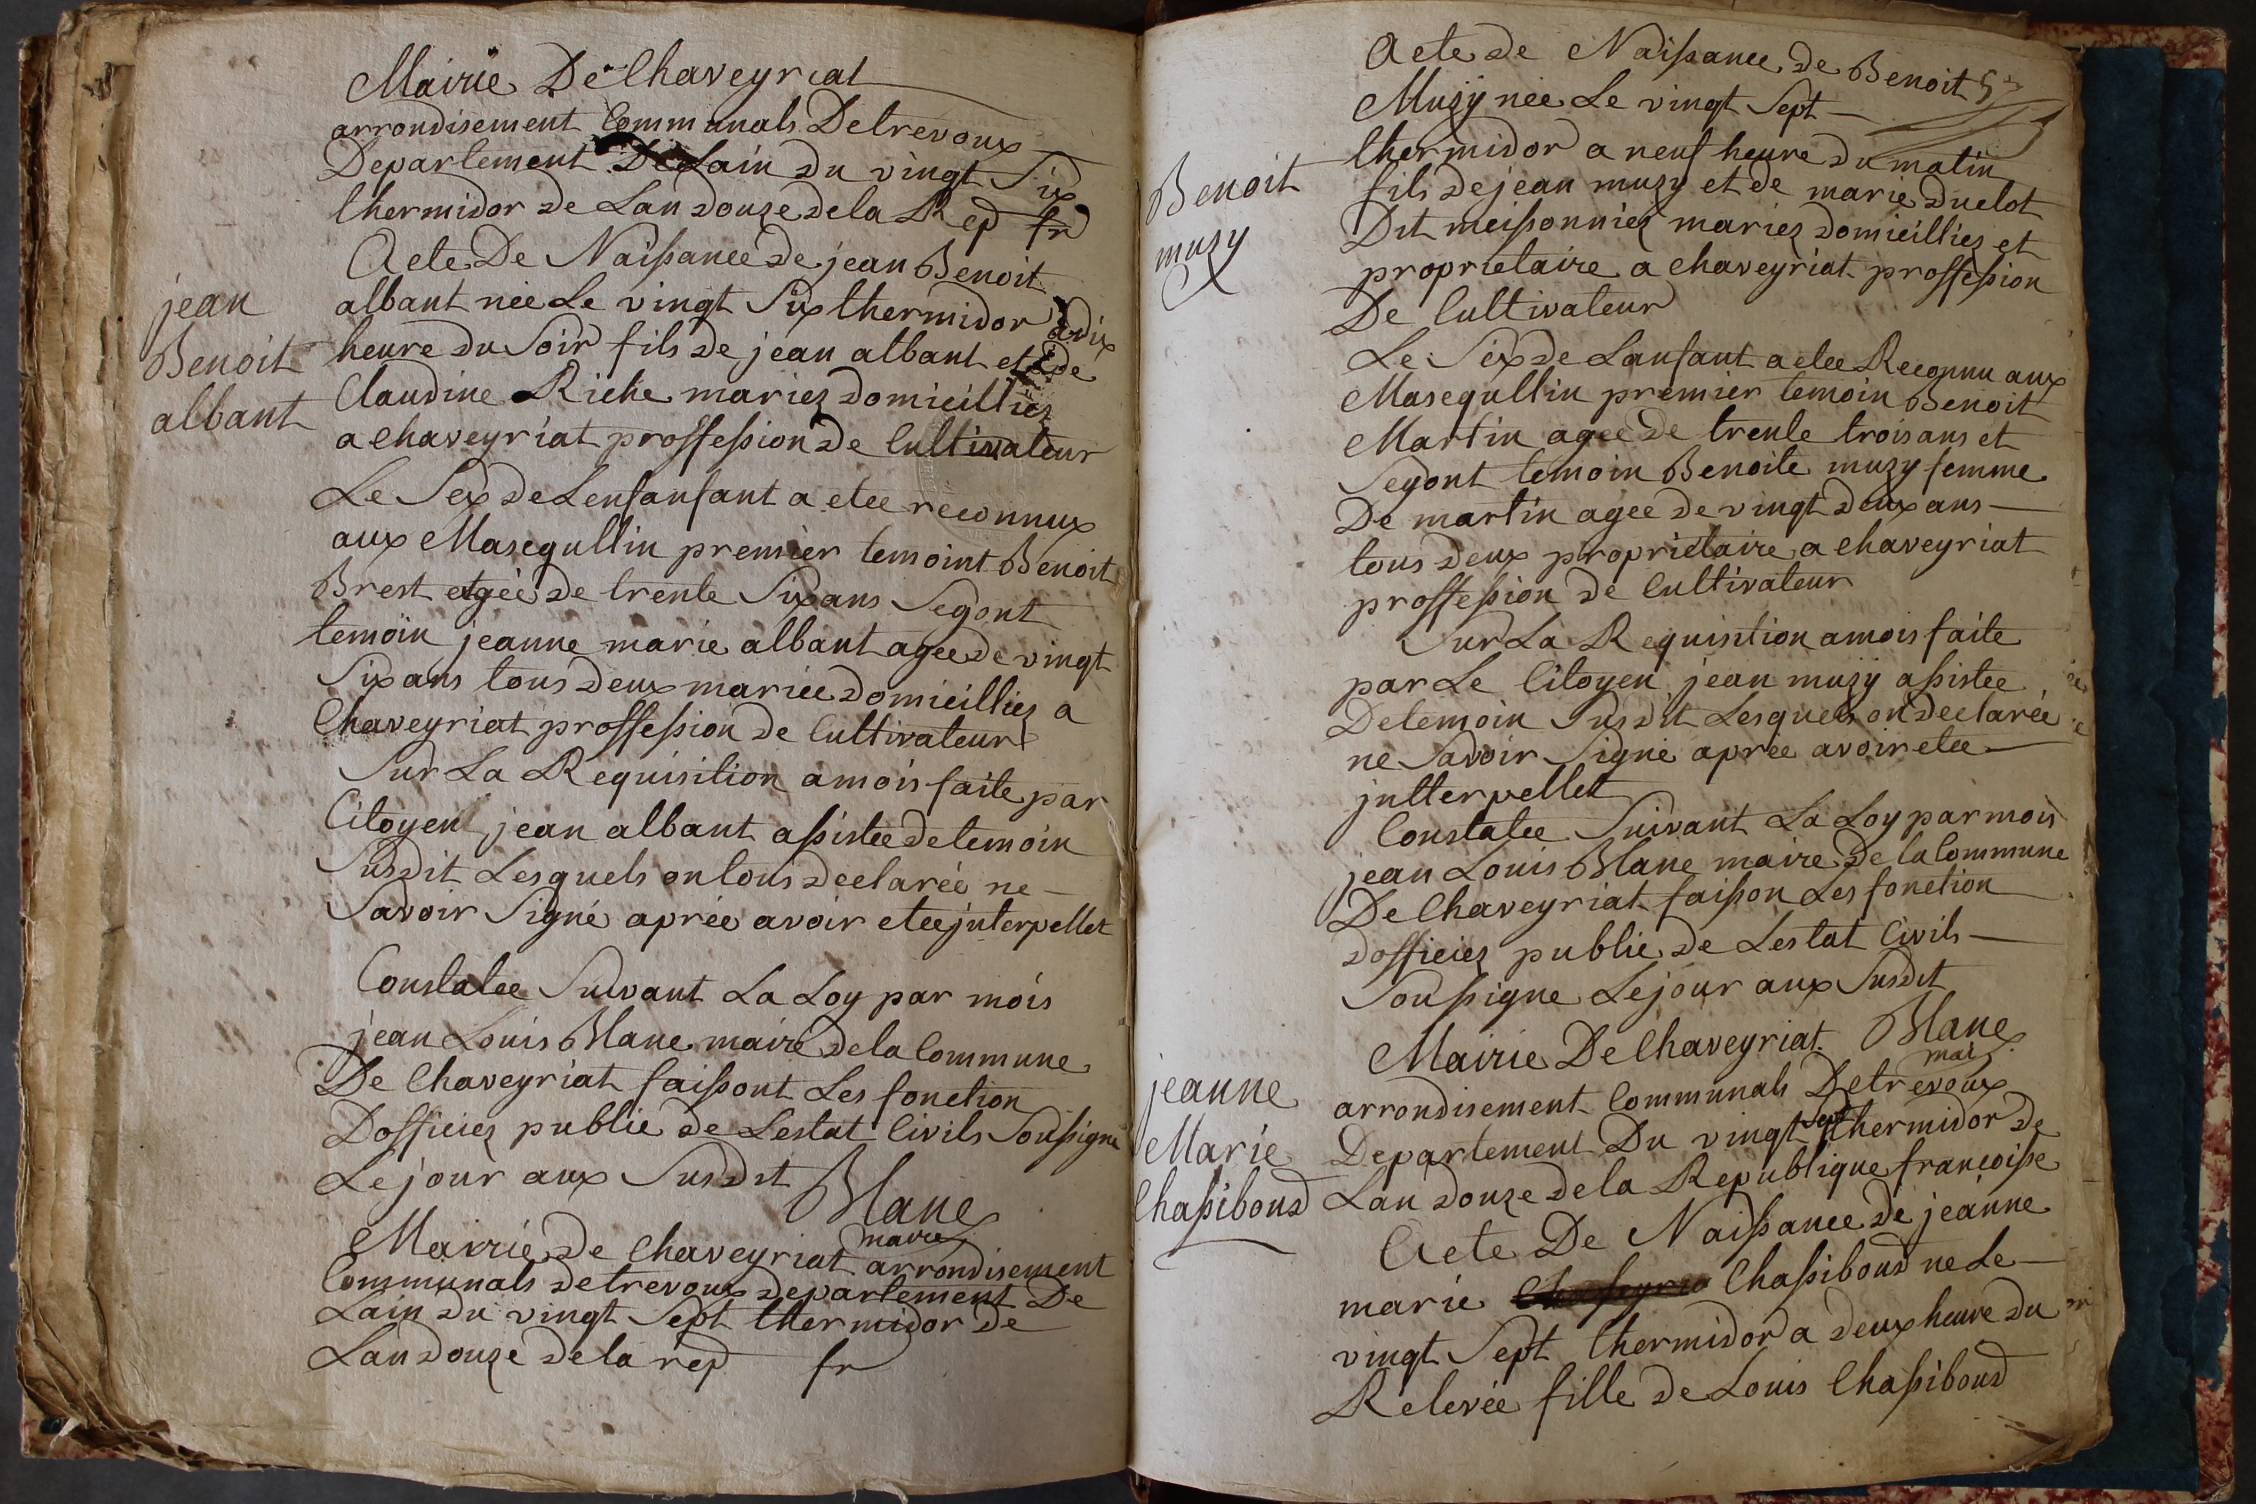 Mairie De Chaveyriat
arrondisement Communals Detrevoux
Departement De Lain du vingt Six
thermidor de Lan douze dela Rep fr
jean
Benoit
albant
Acte De Naissance de jean Benoit
albant née Le vingt Six thermidor a dix
heure du Soir fils de jean albant et de
Claudine Riche mariez domicilliez
a chaveyriat proffession de Cultivateur
Le Sex de Lenfanfant a etee reconnux
aux Masequllin premier temoint Benoit
Brest agée de trente Six ans Segont
temoin jeanne marie albant agee de vingt
Six ans tous deux mariée domicilliez a
Chaveyriat proffession de Cultivateur
Sur La Requisition a mois faite par
Citoyen jean albant assistee de temoin
Susdit Lesquels on tous declarée ne
Savoir Signé aprée avoir etee jnterpellet
Constatee Suivant La Loy par mois
jean Louis Blanc maire dela Commune
De Chaveyriat faissont Les fonction
Dofficiez public de Lestat Civils Soussigne
Le jour aux Susdit
Blanc
maire
Mairie de Chaveyriat arrondisement
Communals de trevoux departement De
Lain du vingt Sept thermidor de
Lan douze de la rep fr
Acte de Naissance de Benoit
Muzy née Le vingt Sept
thermidor a neuf heure du matin
Benoit
muzy
fils de jean muzy et de marie duclot
Dit meissonniez mariez domicilliez et
proprietaire a chaveyriat proffession
De Cultivateur
Le Sex de Lanfant a etee Reconnu aux
Masequllin premier temoin Benoit
Martin agee de trente trois ans et
Segont temoin Benoite muzy femme
De martin agee de vingt deux ans
tous deux proprietaire a chaveyriat
proffession de Cultivateur
Sur La Requisition a mois faite
par Le Citoyen jean muzy assistee
De temoin Susdit Lesquels on declarée
ne Savoir Signé aprée avoir etee
jntterpellet
Constatee Suivant La Loy par mois
jean Louis Blanc maire de la Commune
De Chaveyriat faisson Les fonction
dofficiez public de Lestat Civils
Soussigne Le jour aux Susdit
Blanc
mai
Mairie De Chaveyriat
arrondisement Communals Detrevoux
Departement Du vingt Sept thermidor de
Lan douze dela Republique francoisse
jeanne
Marie
Chassiboud
Acte De Naissance de jeanne
marie Chassiboud ne Le
vingt Sept thermidor a deux heure du
Relevée fille de Louis Chassiboud